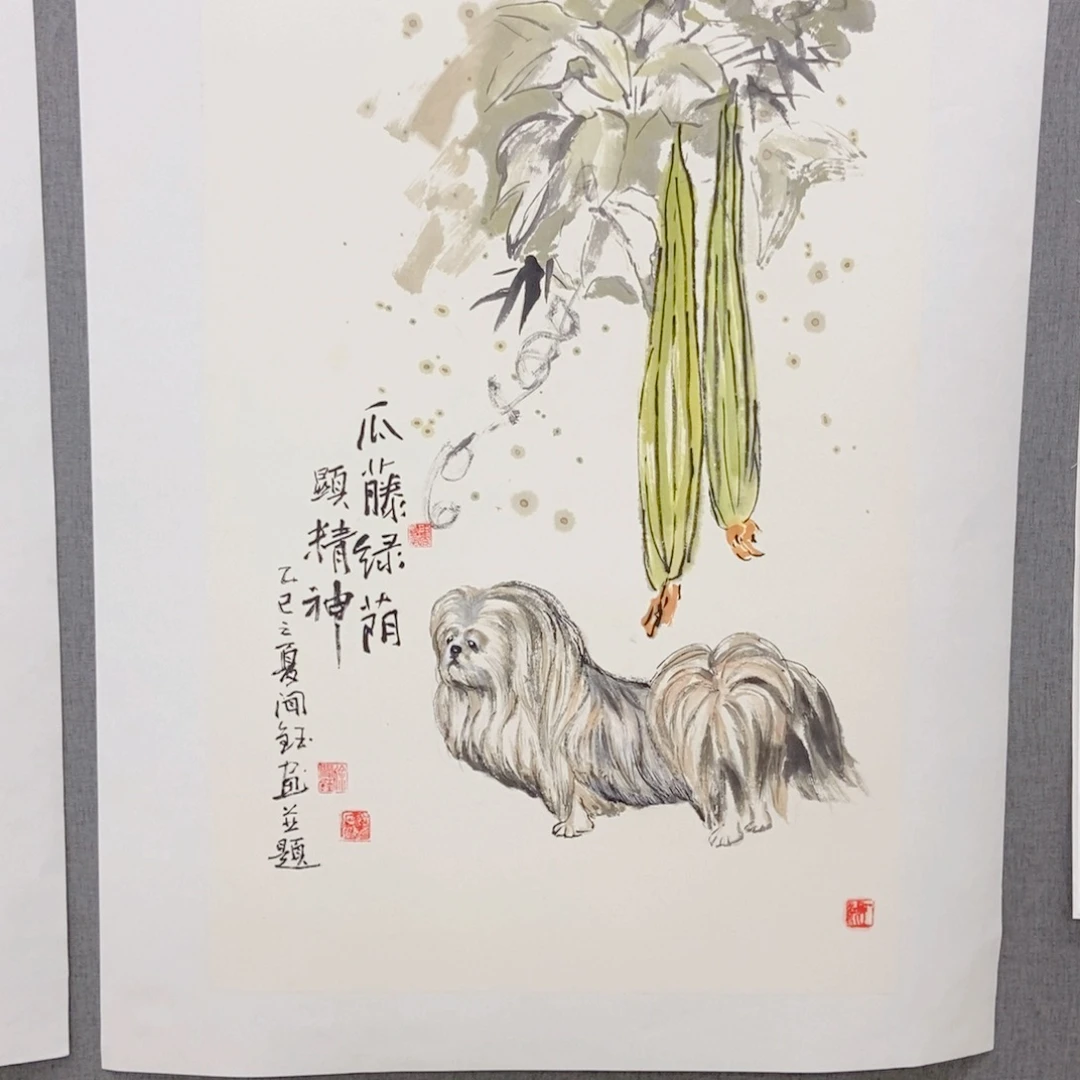 瓜藤绿荫
顯精神
乙巳之夏闻钰画並題